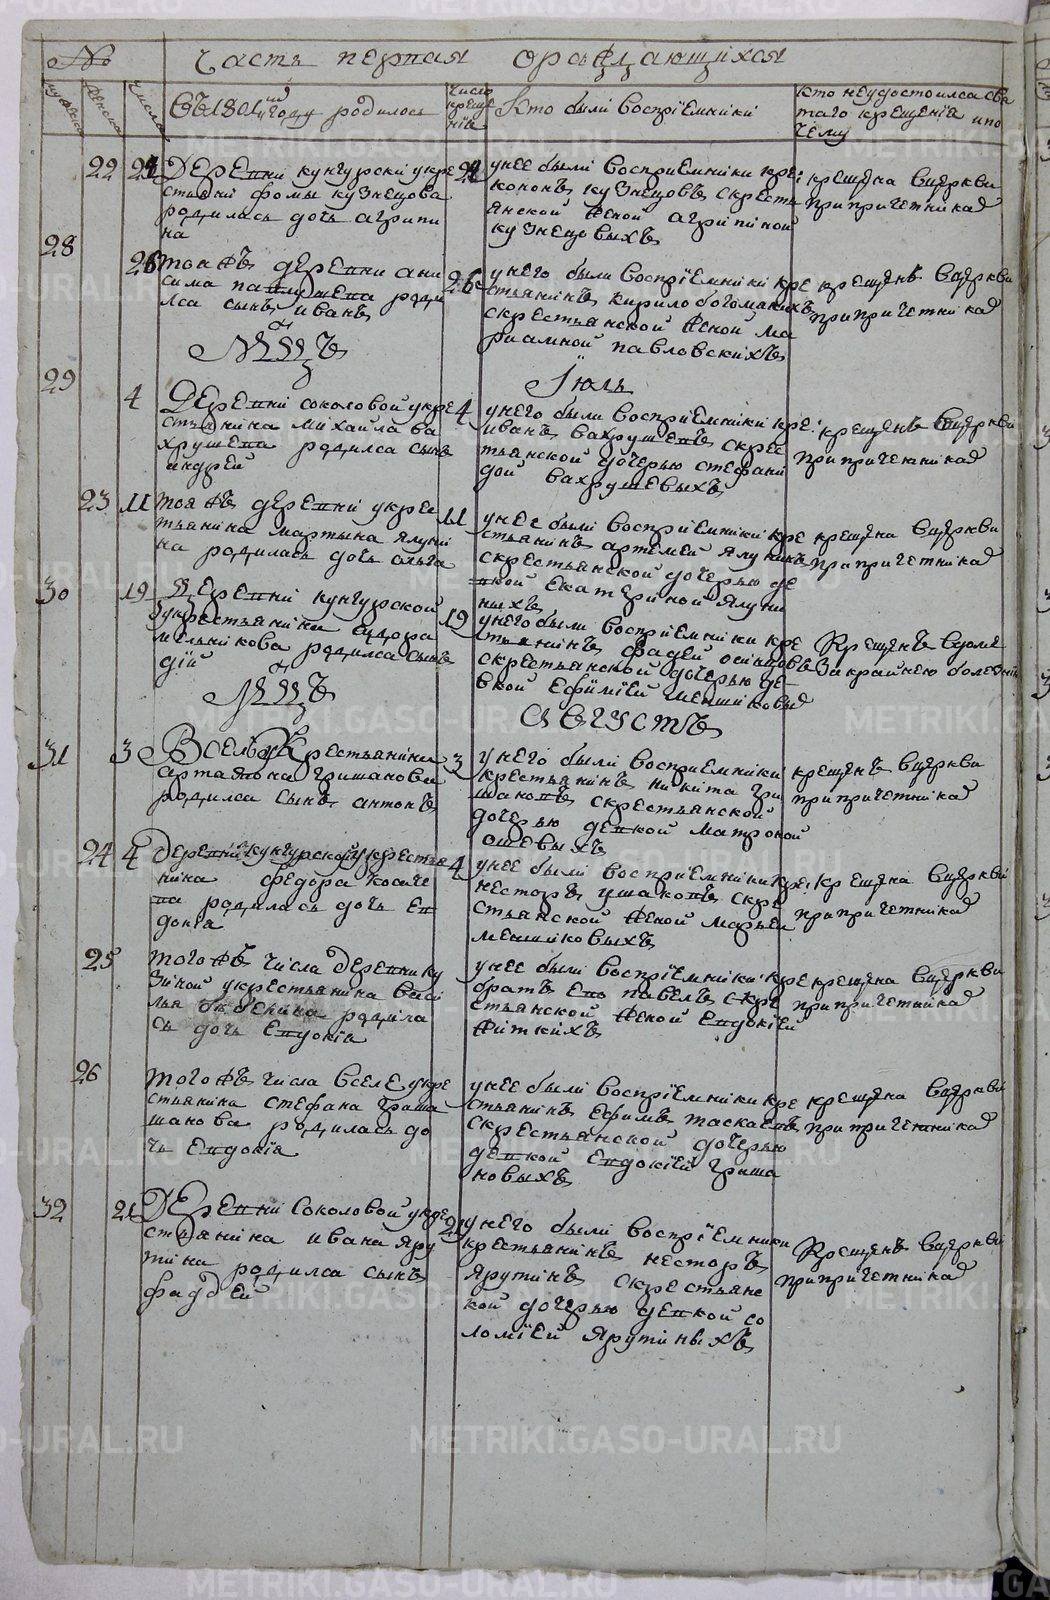 № Часть первая ораждающихся
мужеска
женска
числа
въ 1801м году родилось
число креще нiя
Кто были воспрiемники
Кто неудостоился свя таго крещенiя ипо чему
22 24 Деревни кунгурской укре
стьянина фомы кузнецова
родилась дочь агрипи
на
24 унее были восприемники кре:
кононъ кузнецовъ скресть
янской женой агрипiной
кузнецовыхъ
крещена вцеркви
припричетникад
28 26 тояжъ деревни ани
сима родi
лса сынъ иванъ
26 унего были воспрiемники кре
стьянинъ кирило богомаковъ
скрестьянской женой ма
риамной павловскихъ
крещенъ вцеркви
припричетникад
Мцъ
Iюль
29 4 Деревни соколовой укре
стьянина михайла ва
хрушева родился сынъ
андрей
4 унего были восприемники кре:
иванъ вахрушевъ скрес
тьянской дочерью стефани
дой вахрушевыхъ
крещенъ вцеркви
припричетникад
23 11 тояжъ деревни укрес
тьянина мартына ялуни
на родилась дочь ольга
11 унее были восприемники кре
стьянинъ артемей ялунинъ
скрестьянской дочерью де
вкой екатериной ялуни
ныхъ
крещена вцеркви
припричетникад
30 19 Деревни кунгурской
укрестьянина сидора
мельникова родился сынъ
19 унего были восприемники кре
стьянинъ фадей осинцовъ
скрестьянской дочерью де
вкой ефимiей меншиковыхъ
Крещенъ вдоме
закрайнею болезнiю
Мцъ
августъ
31 3 Вселе укрестьянина
артамона гришанова
родился сынъ антонъ
3 унего были восприемники
крестьянинъ никита гри
шановъ скрестьянской
дочерью девкой матроной
ошевыхъ
крещенъ вцеркви
припричетникад
24 4 деревни кунгурской укрестья
нина федора косаче
ва родилась дочь ев
докiя
4 унее были восприемники кре:
несторъ ушаковъ скре
стьянской женой марьей
меншиковыхъ
крещена вцеркви
припричетникад
25 тогожъ числа деревни ку
зиной укрестьянина васi
лья бабенина родила
сь дочь евдокiя
унее были воспрiемники кре
братъ ево павелъ скре
стьянской женой евдокiей
житкихъ
крещена вцеркви
припричетникад
26 тогожъ числа вселе укре
стьянина стефана гриша
шанова родилась до
чь евдокiя
унее были воспрiемники кре
стьянинъ ефимъ таскаевъ
скрестьянской дочерью
девкой евдокiей гриша
новыхъ
крещена вцеркви
припричетникад
32 21 Деревни соколовой укре
стьянина ивана яру
тина родился сынъ
фаддей
21 унего были воспрiемники
крестьянинъ несторъ
ярутинъ скрестьянс
кой дочерью девкой со
ломiей ярутиныхъ
Крещенъ вцеркви
припричетникад
METRIKI.GASO-URAL.RU